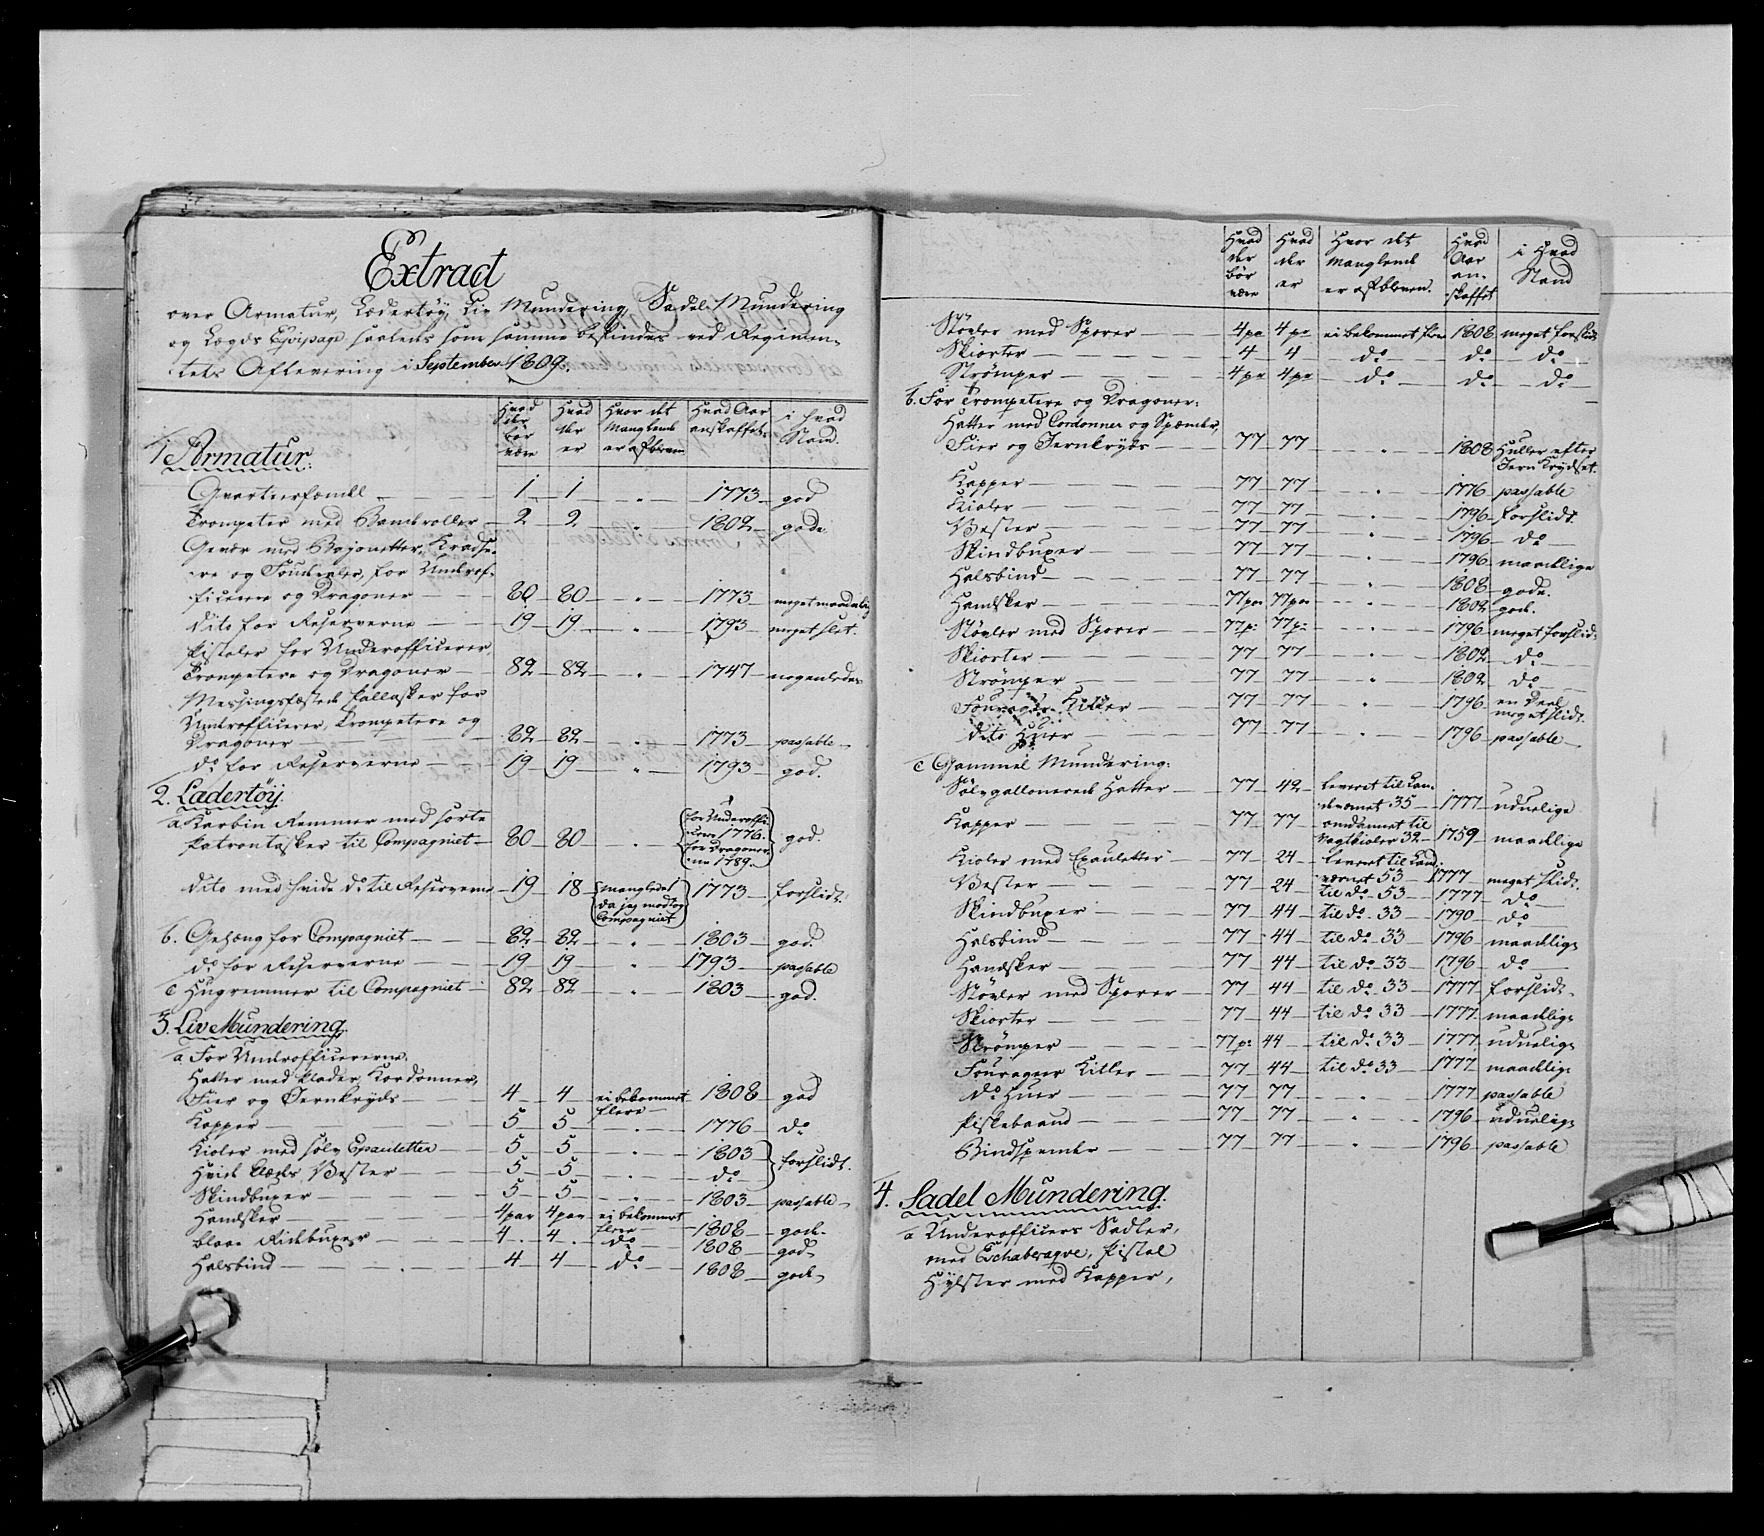 Extract
over Armatur, Lædertöy, Liv Mundering, Sadel Mundering
og Lægds Eqvipage saaledes som samme befindes ved Regimen-
tets Aflevering i September 1809.
Hvad der bör være | Hvad der er | Hvor det Manglende er afbleven | Hvad Aar anskaffet | i hvad Stand.
1 Armatur:
Qvarteerfane — 1 — 1 — " — 1773 — god
Trompeter med Banderoller — 2 — 2 — " — 1802 — gode
Gevær med Bajonetter, Kradse-
re og Foudraler, for Underof-
ficerer og Dragoner — 80 — 80 — " — 1773 — meget maadelig
Dito for Reserverne — 19 — 19 — " — 1793 — meget slet.
Pistoler for Underofficerer,
Trompetere og Dragoner — 82 — 82 — " — 1747 —
Messingfæstede Pallasker for
Underofficerer, Trompetere og
Dragoner — 82 — 82 — " — 1773 — passable
do for Reserverne — 19 — 19 — " — 1793 — god.
2. Ladertöy.
a Karbin Remmer med sorte
Patrontasker til Compagniet — 80 — 80 — " — for Underoffi- cerer 1776. for Dragoner- ne 1789. — god.
Dito med hvide do til Reserverne — 19 — 18 — manglede da jeg modtog Compagniet — 1773 — forslidt.
b. Gehæng for Compagniet — 82 — 82 — " — 1803 — god.
do for Reserverne — 19 — 19 — " — 1793 — passable
c Hugremmer til Compagniet — 82 — 82 — " — 1803 — god.
3. Liv Mundering.
a For Underofficererne.
Hatter med Kordonner,
Fier og Jernkryds — 4 — 4 — ei bekommet flere — 1808 — god
Kapper — 5 — 5 — " — 1776 — do
Kioler med sölv Epauletter — 5 — 5 — " — 1803 — forslidt.
Hvide Klæds Vester — 5 — 5 — " — do
Skindbuxer — 5 — 5 — " — 1803 — passable
Handsker — 4 par — 4 par — ei bekommet flere — 1808 — gode
blaae Ridebuxer — 4 — 4 — do — 1808 — gode
Halsbind — 4 — 4 — do — 1808 — gode
Hvad der bör være | Hvad der er | Hvor det Manglende er afbleven. | Hvad Aar an- skaffet | i Hvad Stand
Stövler med Sporer — 4 pa — 4 pa — ei bekommet flere — 1808 — meget forslidt
Skiorter — 4 — 4 — do — do — do
Strömper — 4 pa — 4 pa — do — do — do
b. For Trompetere og Dragoner:
Hatter med Cordonner og Spænder,
Fier og Jernkryds — 77 — 77 — " — 1808 — Huller efter Jern Krydset.
Kapper — 77 — 77 — " — 1776 — passable
Kioler — 77 — 77 — " — 1796 — forslidt.
Vester — 77 — 77 — " — 1796 — do
Skindbuxer — 77 — 77 — " — 1796 — maadelige
Halsbind — 77 — 77 — " — 1808 — gode.
Handsker — 77 par — 77 par — " — 1802 — gode.
Stövler med Sporer — 77 p: — 77 p: — " — 1796 — meget forslidt
Skiorter — 77 — 77 — " — 1802 — do
Strömper — 77 — 77 — " — 1802 — do
Fourageer Kitler — 77 — 77 — " — 1796 — en Deel meget slidt.
dito Huer — 77 — 77 — " — 1796 — passable
c Gammel Mundering:
Sölvgallonerede Hatter — 77 — 42 — leveret til Lan- deværnet 35 — 1777 — uduelige
Kapper — 77 — 77 — omdannet til Vagtkioler 32 — 1759 — maadelige
Kioler med Epauletter — 77 — 24 — leveret til Land- værnet 53 — 1777 — meget slidt.
Vester — 77 — 24 — til do 53 — 1777 — do
Skindbuxer — 77 — 44 — til do 33 — 1790 — do
Halsbind — 77 — 44 — til do 33 — 1796 — maadelige
Handsker — 77 — 44 — til do 33 — 1796 — do
Stövler med Sporer — 77 — 44 — til do 33 — 1777 — forslidt
Skiorter — 77 — 44 — til do 33 — 1777 — maadelige
Strömper — 77 p: — 44 — til do 33 — 1777 — uduelige
Fourageer Kitler — 77 — 44 — til do 33 — 1777 — maadelige
do Huer — 77 — 77 — " — 1777 — passable
Piskebaand — 77 — 77 — " — 1796 — uduelige
Bindspender — 77 — 77 — " — 1796 — passable
4. Sadel Mundering.
a Underofficers Sadler,
med Schabraqve, Pistol
Hylster med Kapper,